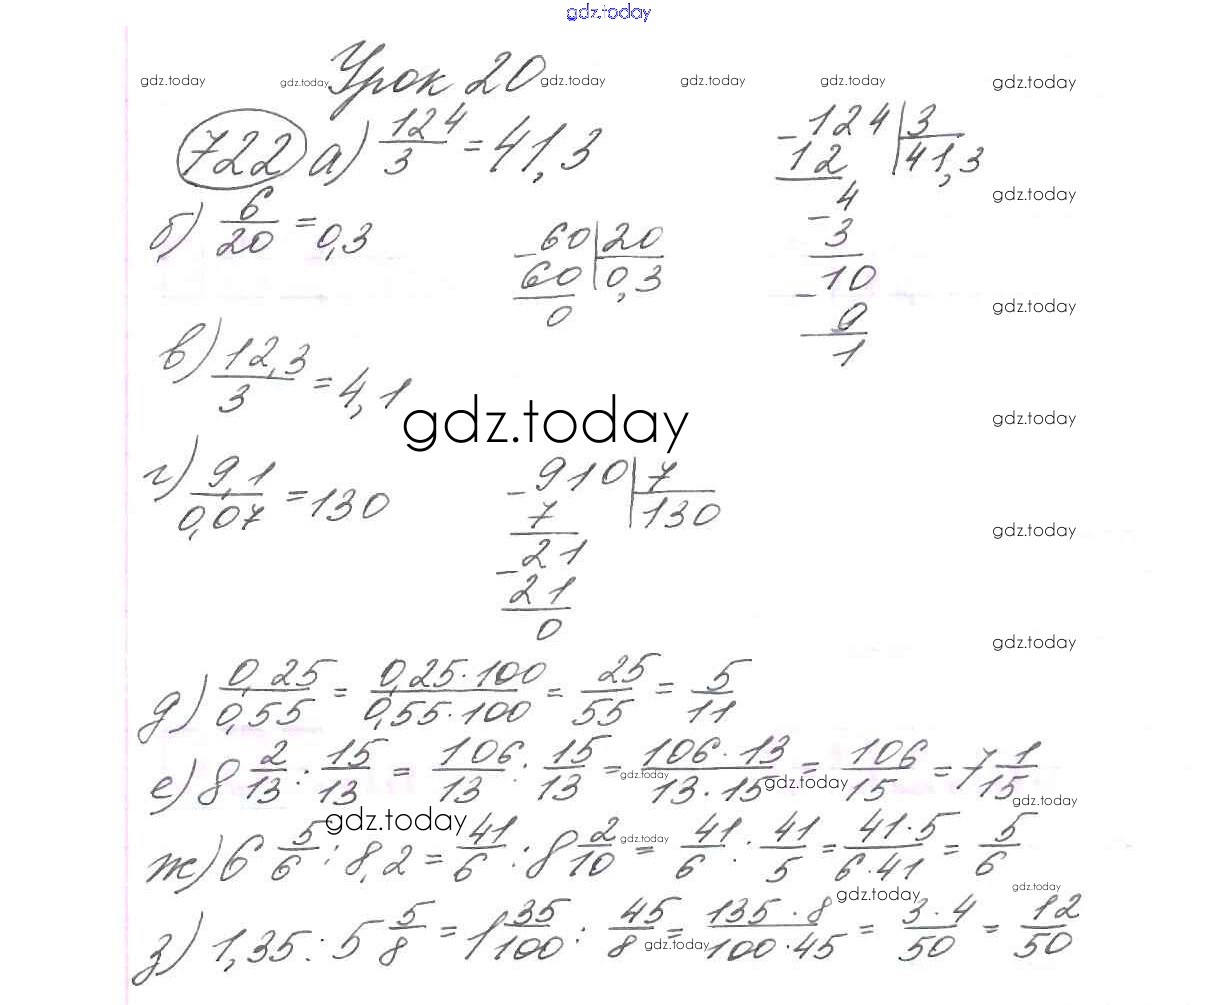 gdz.today
Урок 20
gdz.today gdz.today gdz.today gdz.today gdz.today gdz.today
722 а) 124/3 = 41,3
124 | 3
- 12 41,3
4
- 3
10
- 9
1
б) 6/20 = 0,3
60 | 20
- 60 0,3
0
gdz.today
gdz.today
в) 12,3/3 = 4,1
gdz.today
gdz.today
г) 9,1/0,07 = 130
910 | 7
- 7 130
21
- 21
0
gdz.today
gdz.today
д) 0,25/0,55 = 0,25·100/0,55·100 = 25/55 = 5/11
е) 8 2/13 : 15/13 = 106/13 : 15/13 = 106·13/13·15 = 106/15 = 7 1/15
gdz.today gdz.today gdz.today
gdz.today gdz.today
ж) 6 5/6 : 8,2 = 41/6 : 8 2/10 = 41/6 : 41/5 = 41·5/6·41 = 5/6
gdz.today gdz.today
з) 1,35 : 5 5/8 = 1 35/100 : 45/8 = 135·8/100·45 = 3·4/50 = 12/50
gdz.today